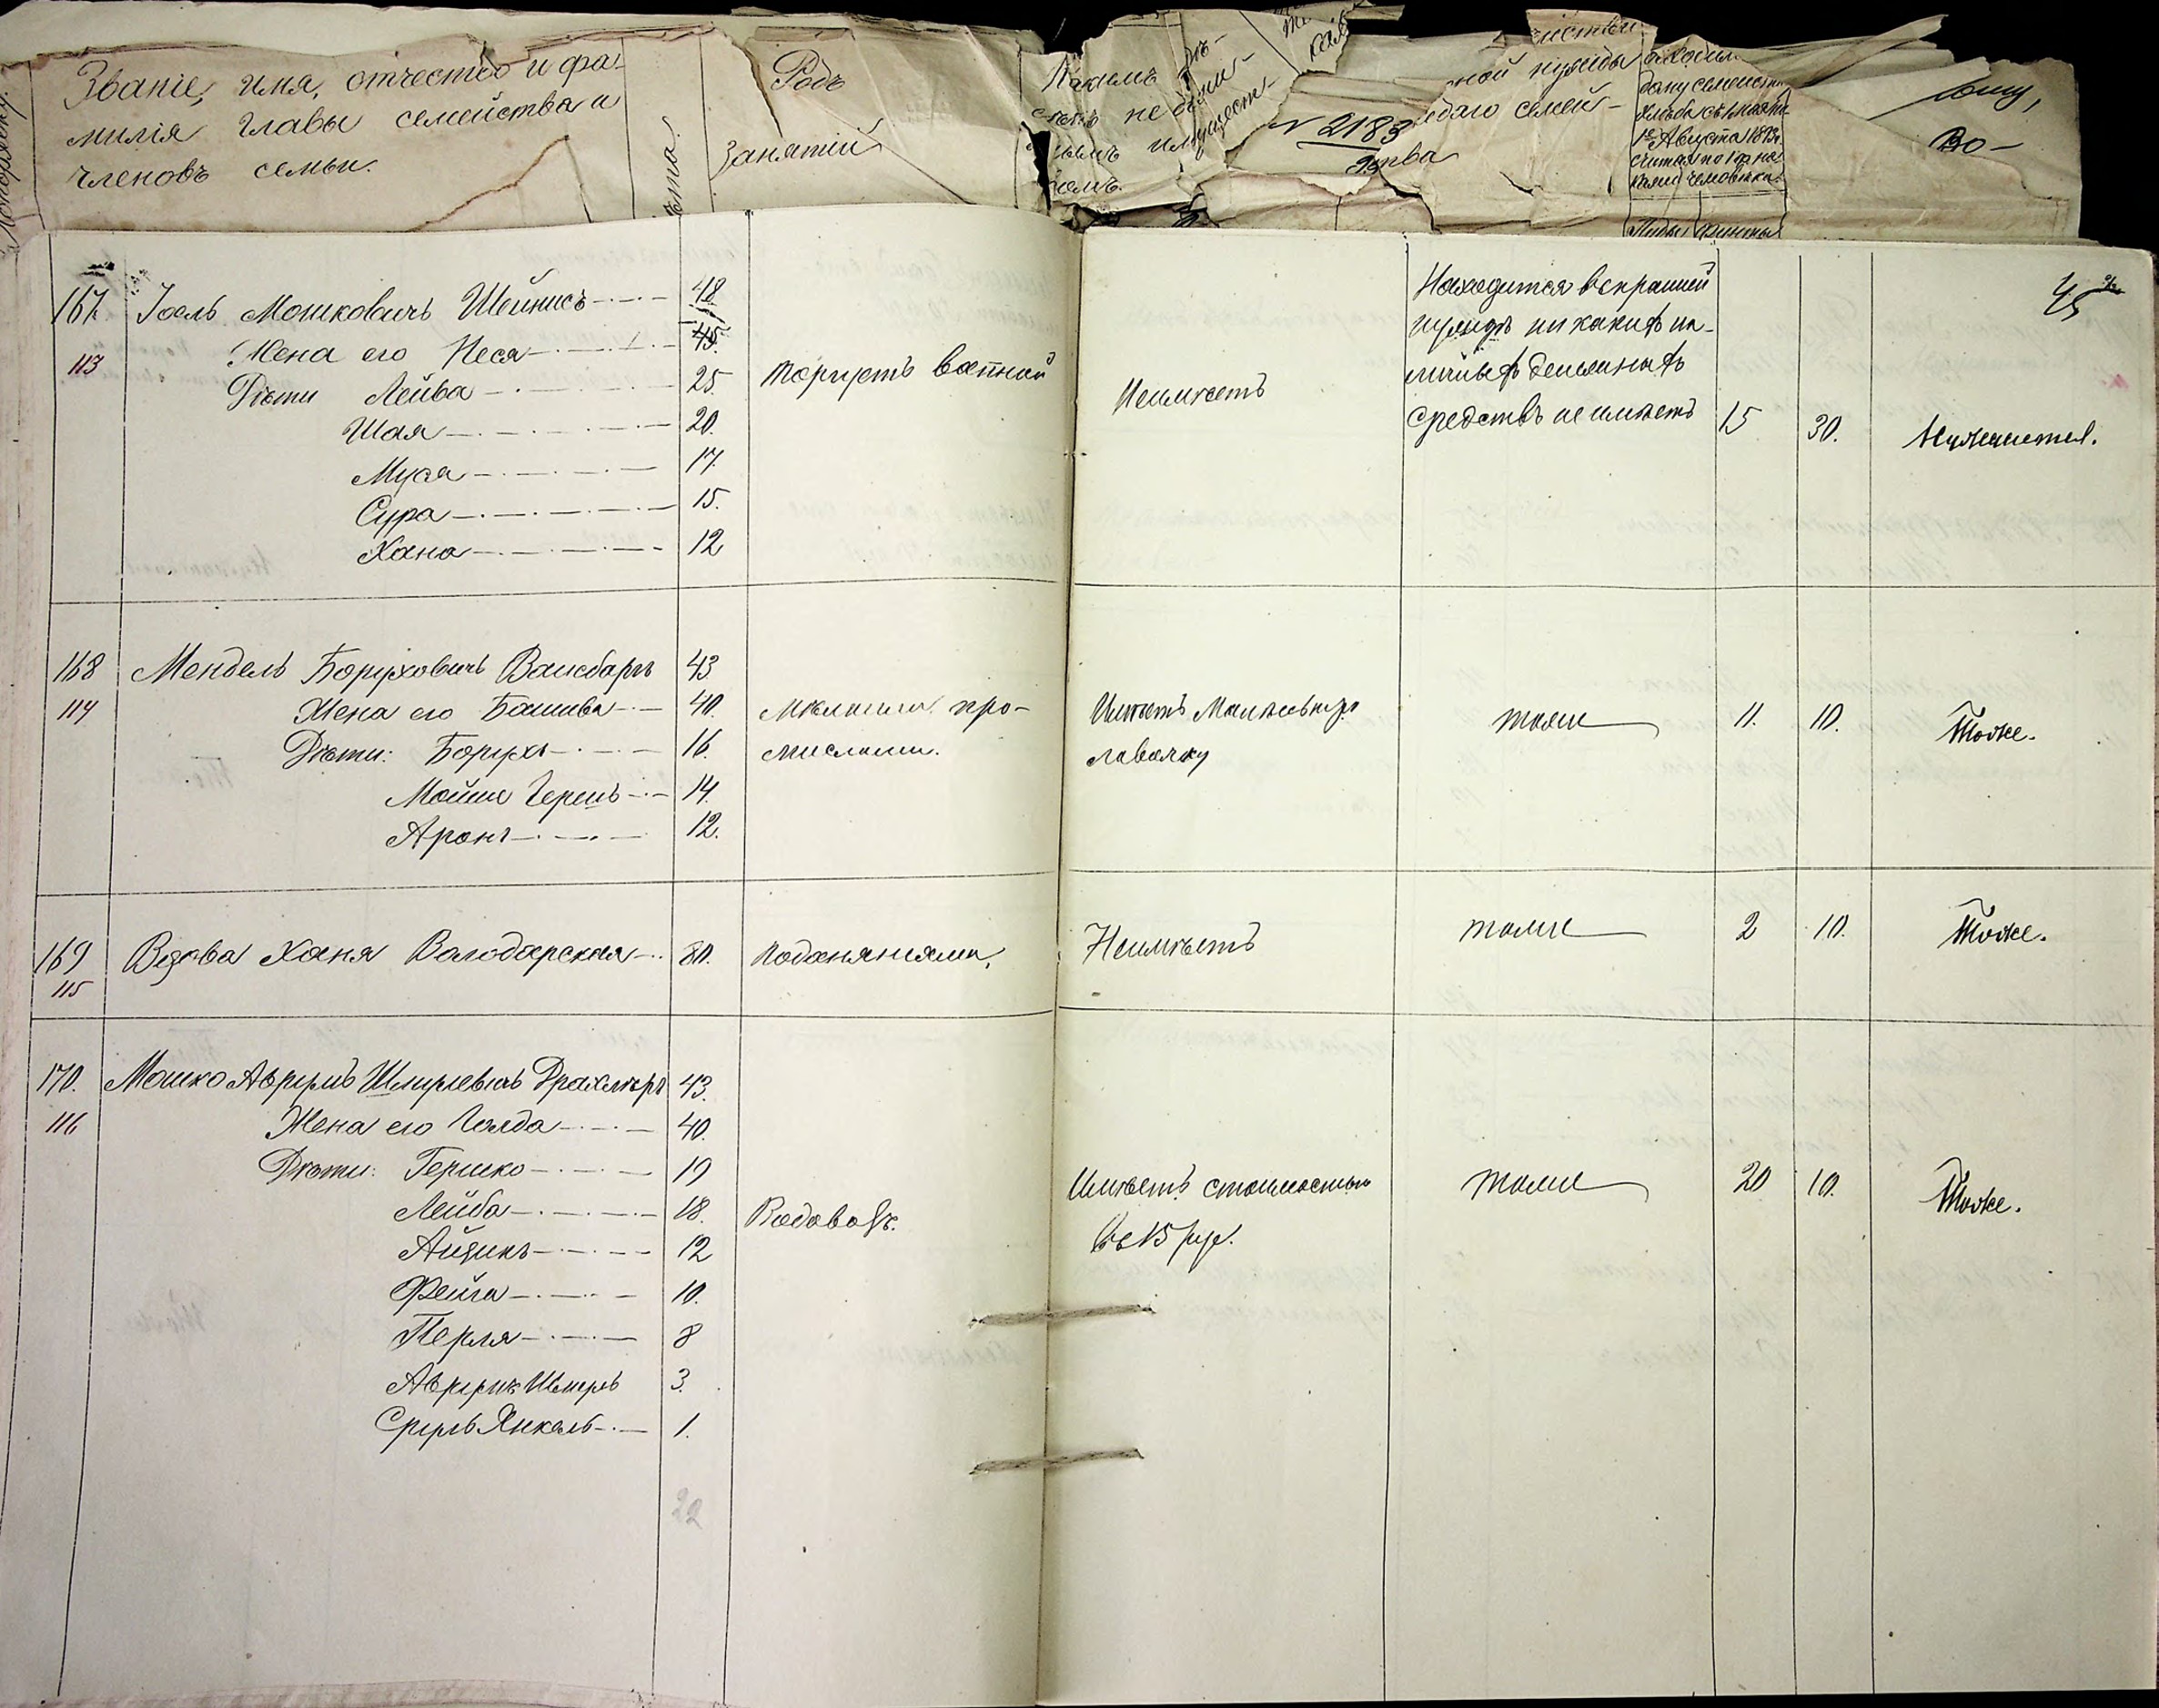 Званіе, имя, отчество и фа-
милія главы семейства и
членовъ семьи.
Лѣта.
Родъ
занятій
Какимъ
не
имущест-
№ 2183
ной нужды
семей-
ства
1го Августа 1873г.
считая по 1 п. на
человѣка.
Пуды
Фунты
45
167. Іоель Мошковичъ Шейнисъ 48.
113 Жена его Неся 45.
Дѣти Лейба 25.
Шая 20.
Муся 17.
Сура 15.
Хана 12
Торгуетъ ватной
Неимѣетъ
Находится вскрайней
нуждѣ ни какихъ на-
личныхъ денежныхъ
средствъ не имѣетъ 15 30. Нуждается.
168 Мендель Боруховичъ Ваисбаргъ 43
114 Жена его Башива 40.
Дѣти: Борухъ 16.
Мойше Герешъ 14.
Аронъ 12.
Мѣлкими про-
мислами.
Имѣетъ
лавочку
тоже 11. 10. Тоже.
169 Вдова Ханя Володарская 80. Подаяніями. Неимѣетъ тоже 2 10. Тоже.
115
170. Мошко Аврумъ Шмулевичъ Драхлеръ 43.
116 Жена его Голда 40.
Дѣти: Гершко 19
Лейба 18.
Айзикъ 12
Фейга 10.
Перля 8
Аврумъ Шмуль 3.
Сруль Янкель 1.
Водовозъ.
Имѣетъ стоимостью
въ 15 руб.
тоже 20 10. Тоже.
22